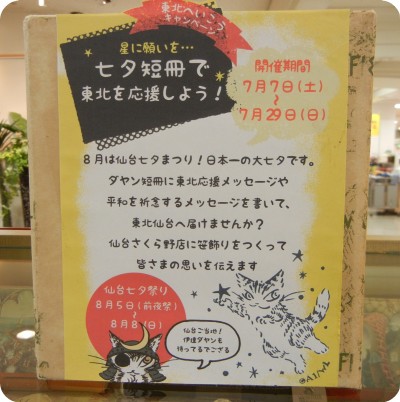 東北へいこう
キャンペーン
星に願いを…
七夕短冊で
東北を応援しよう！
開催期間
7月7日(土)
～
7月29日(日)
8月は仙台七夕まつり！日本一の大七夕です。
ダヤン短冊に東北応援メッセージや
平和を祈念するメッセージを書いて、
東北仙台へ届けませんか？
仙台さくら野店に笹飾りをつくって
皆さまの思いを伝えます
仙台七夕祭り
8月5日(前夜祭)
～
8月8(日)
仙台ご当地！
伊達ダヤンも
待ってるでござる